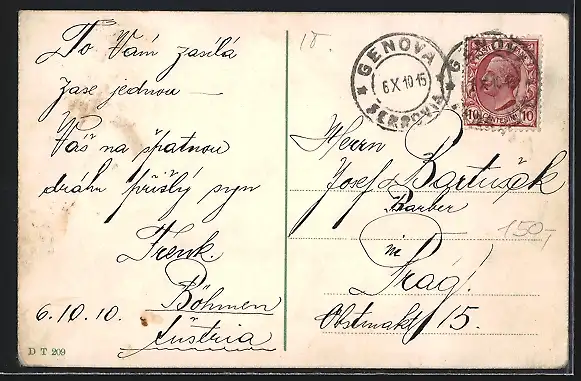 To Vám zasílá
zase jednou —
Váš na špatnou
dráhu přišlý syn
Frenk.
6.10.10.
Böhmen
Austria
D T 209
15.
GENOVA
6 X 10 15
FERROVIA
10 CENTESIMI 10
Herrn
Josef Bartušek
Barber
in
Prag!
Obstmarkt 15.
150,-